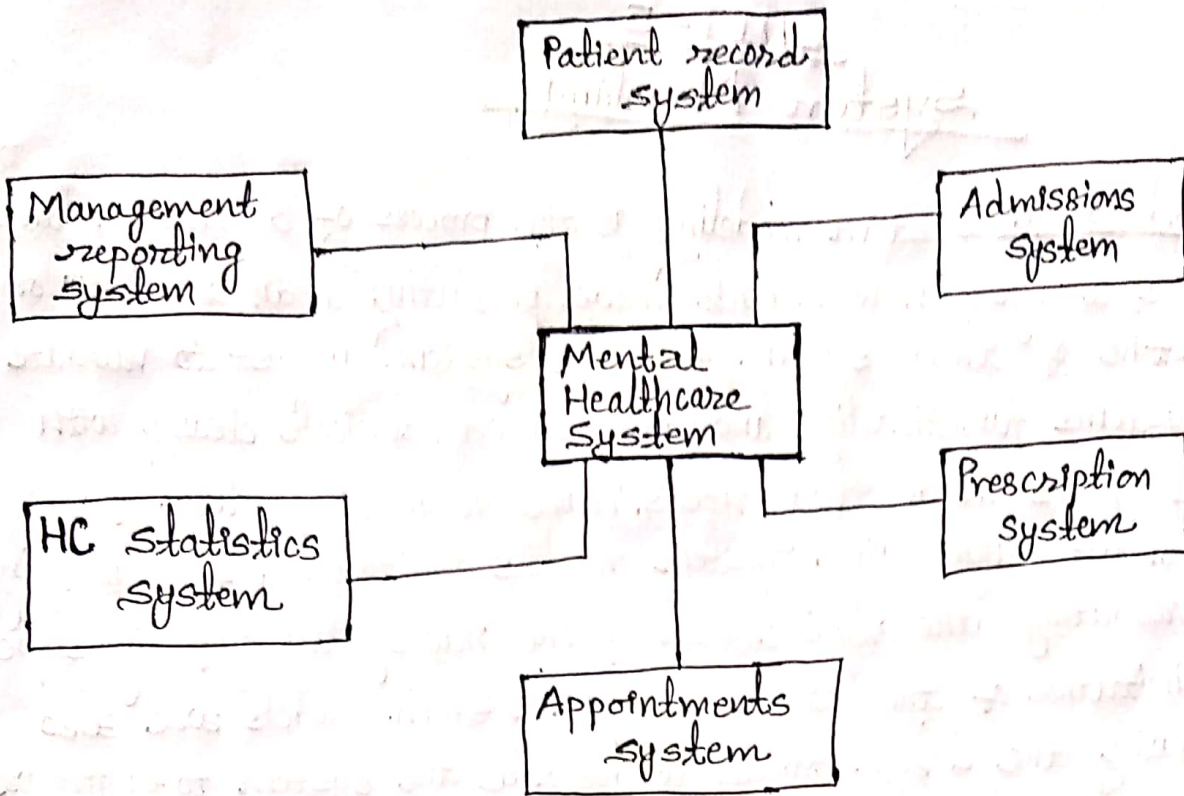 Patient record
system
Management
reporting
system
Admissions
system
Mental
Healthcare
System
Prescription
system
HC statistics
system
Appointments
system